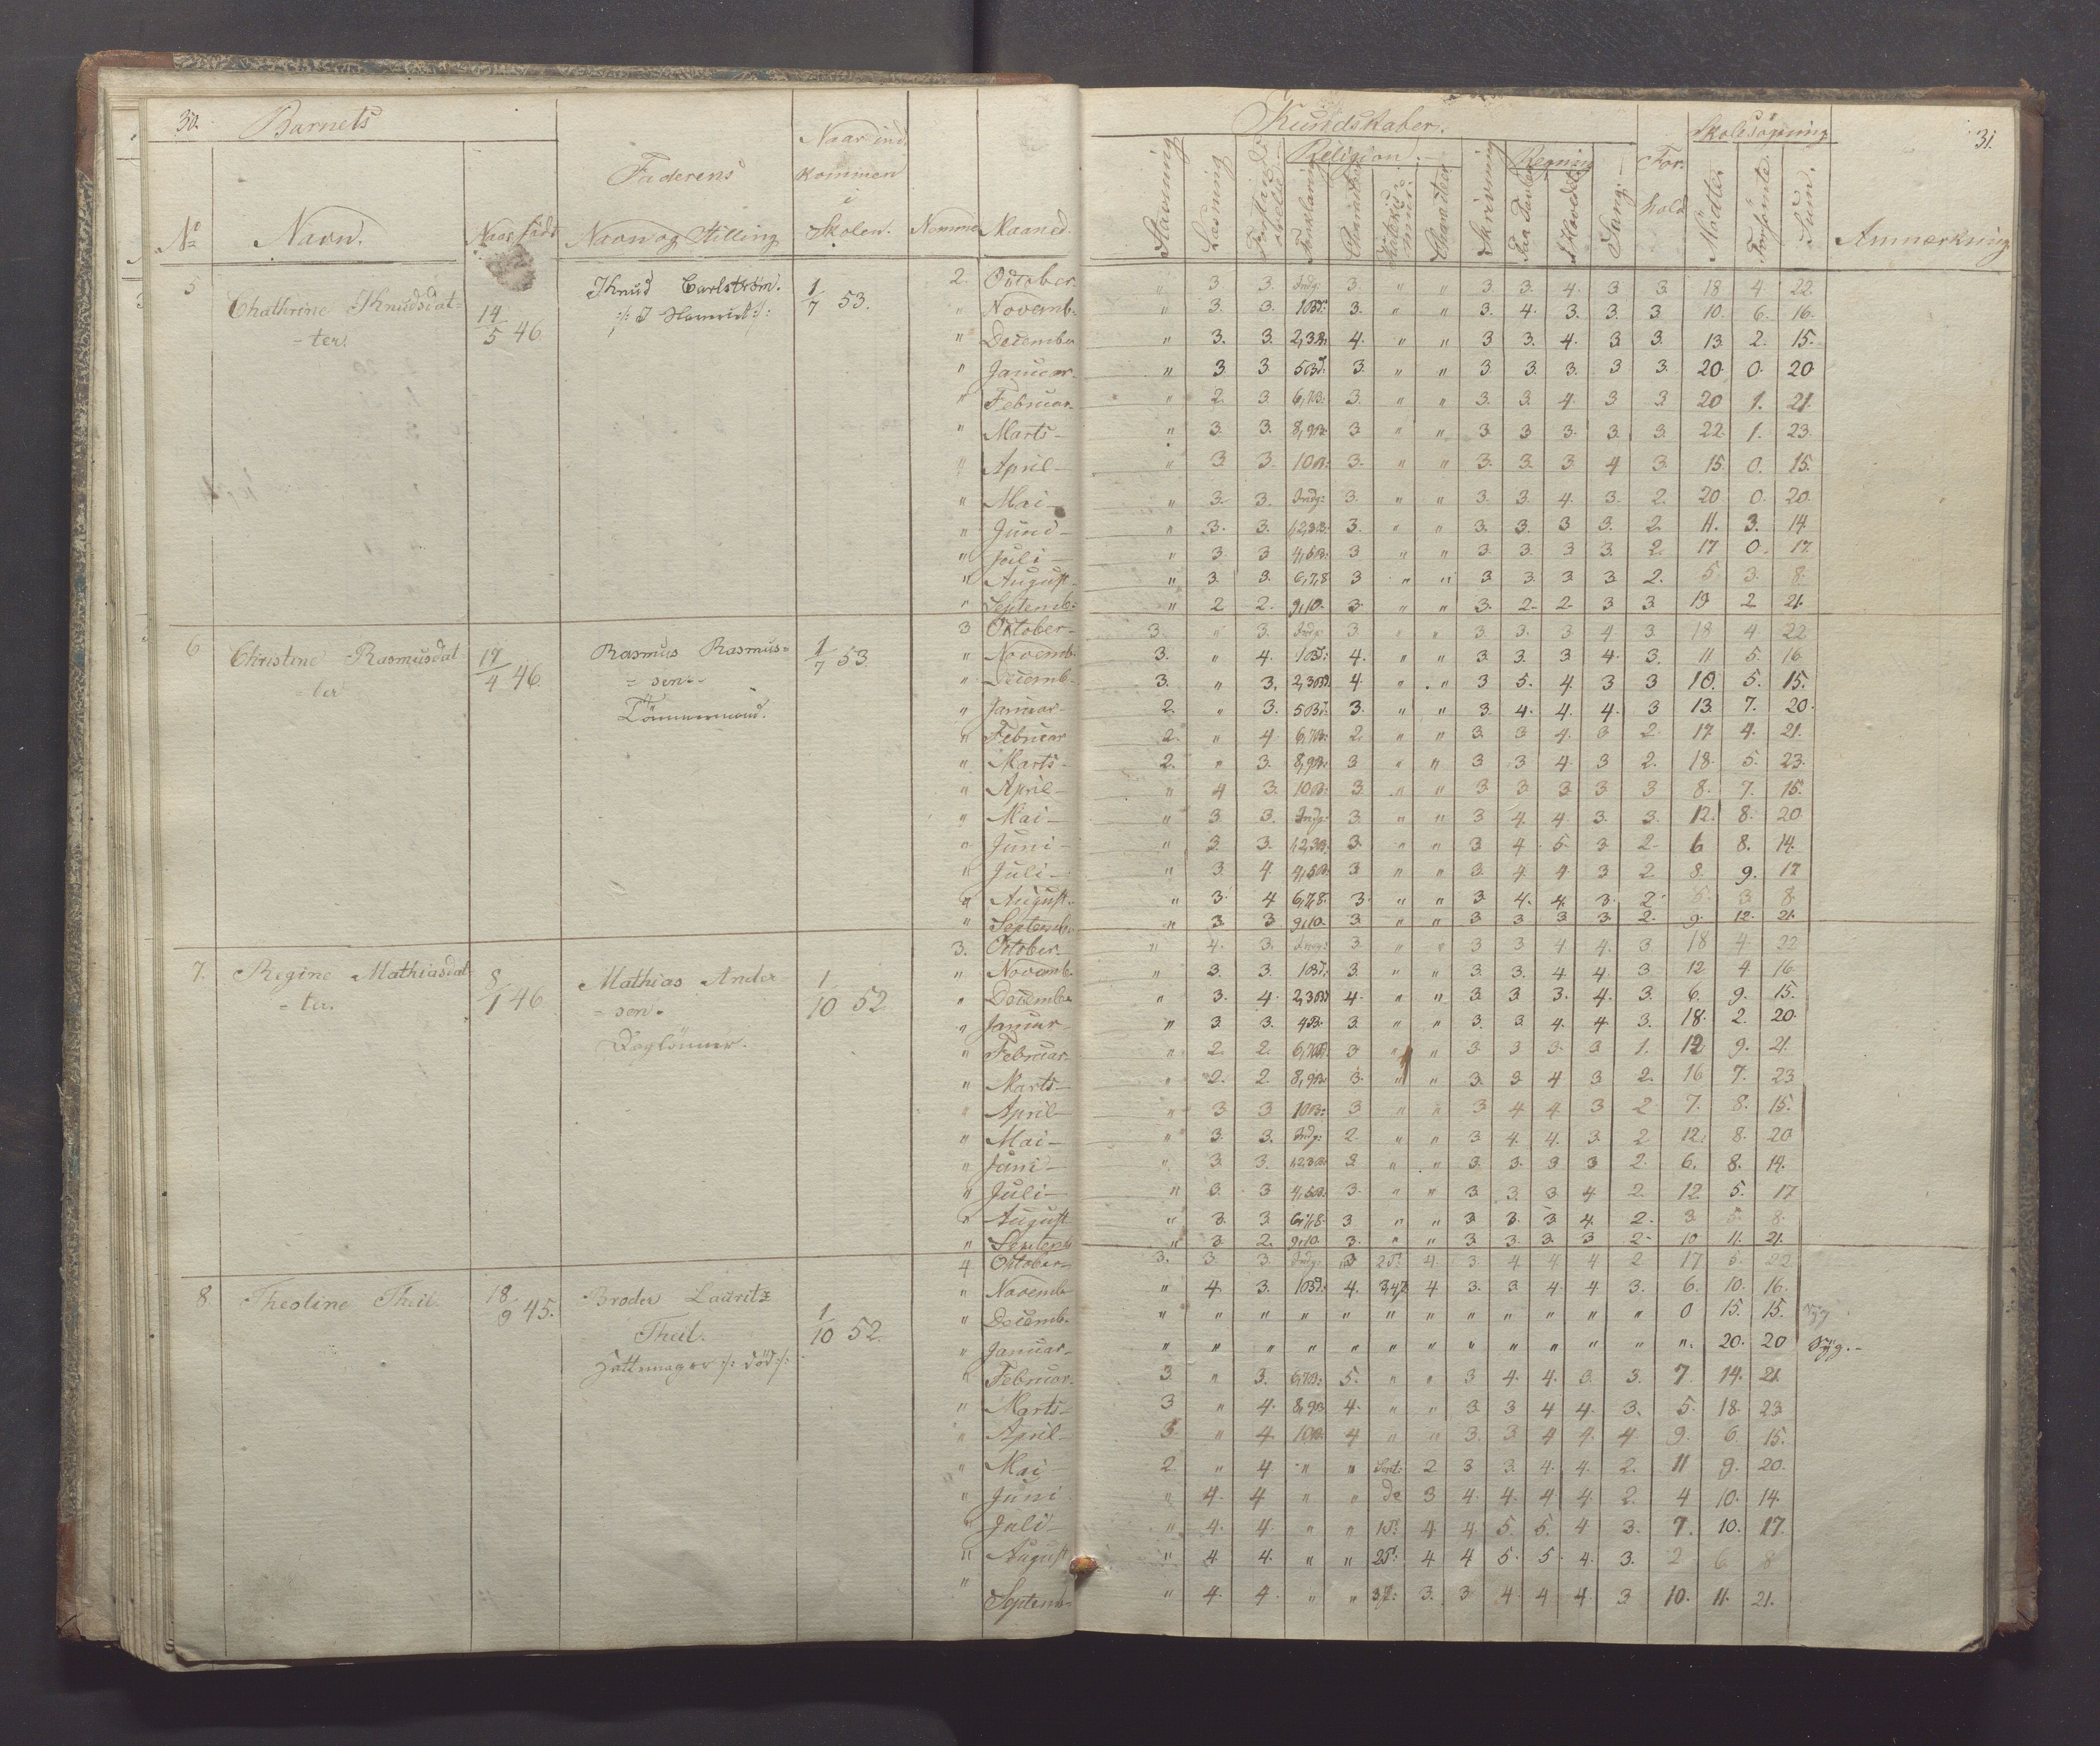 30. Barnets
Faderens
Naar ind
kommen
i
Skolen.
No Navn. Naar født Navn og Stilling Nomme Maaned.
Kundskaber. Skolesøgning 31.
Religion. Regning For-
hold
Stavning Læsning Forklaring Charakter Charakter Skrivning Paa Tavlen I Hovedet Sang. Mødte Forsømte Sum. Anmærkning
5 Chathrine Knudsdat- 14/5 46 Knud Carlstrøm. 1/7 53.
- ter.
2. October. " 3 3. Indg: 3. " " 3 3. 4. 3 3. 18 4 22.
" Novemb. " 3. 3. 3. " " 3. 4. 3. 3. 3 10. 6. 16.
" December " 3. 3. 4. " " 3 3. 4. 3 3. 13 2. 15.
" Januar. " 3 3 3. " " 3 3. 3. 3 3. 20. 0. 20
" Februar. " 2. 3. 3. " " 3. 3. 4. 3 3 20 1. 21.
" Marts- " 3. 3. 3 " " 3 3 3. 3. 3. 22 1. 23.
" April- " 3 3. 3. " " 3. 3. 3 4 3. 15 0. 15.
" Mai- " 3. 3. Indg: 3. " " 3. 3 4. 3. 2. 20 0. 20
" Juni- " 3. 3. 3. " " 3. 3. 3 3. 2. 11. 3. 14
" Juli- " 3 3 3 " " 3. 3. 3 3. 2. 17 0. 17.
" August- " 3. 3. 6,7,8 3 " " 3 3. 3 3 2. 5 3. 8.
" Septemb: " 2 2. 9,10. 3. " " 3. 2. 2. 3 3 19 2 21.
6 Christine Rasmusdat 17/4 46. Rasmus Rasmus= 1/7 53.
= ter = sen.
Tømmermand.
3 October- 3. " 3. Indg: 3. " " 3. 3. 3 4 3. 18 4 22
" Novemb. 3. " 4. 4. " " 3 3. 3 4. 3. 11 5. 16
" Decemb- 3. " 3. 4. " " 3 5. 4. 3 3 10. 5. 15.
" Januar- 2. " 3. 3. " " 3. 4. 4. 4. 3 13 7. 20.
" Februar 2. " 4 2. " " 3. 3 4. 3 2. 17. 4. 21.
" Marts- 2. " 3. 3 " " 3 3 4. 3 2. 18. 5. 23.
" April- " 4 3. 3. " " 3 3 3 3 3 8. 7. 15.
" Mai- " 3. 3. Indg: 3. " " 3 4. 4. 3. 3. 12. 8. 20
" Juni- " 3. 3. 3. " " 3 4. 5. 3 2. 6 8. 14.
" Juli- " 3. 4. 3 " " 3. 4 4. 3 2 8. 9. 17
" August. " 3. 4 6,7,8. 3. " " 3 4. 4. 3. 2. 5. 3 8.
" Septemb. " 3 3 9,10. 3 " " 3 3 3 3 2. 9. 12. 21.
7. Regine Mathiasdat 8/1 46 Mathias Ander 1/10 52.
- ter. = sen.
Daglønner.
3. October- " 4. 3. Indg: 3. " " 3 3 4 4. 3 18 4. 22
" Novemb. " 3. 3. 3. " " 3. 3. 4 4. 3 12 4 16.
" Decembr " 3. 4. 4. " " 3 3 3. 4. 3. 6. 9. 15.
" Januar- " 3. 3. 3. " " 3. 3. 4. 4. 3. 18. 2. 20.
" Februar- " 2. 2. 3 " " 3. 3 3. 3 1. 12 9. 21.
" Marts- " 2. 2. 3. " " 3. 3. 4 3 2. 16 7. 23
" April- " 3 3 3 " " 3 4 4 3 2 7. 8. 15.
" Mai- " 3. 3. Indg: 2. " " 3 4. 4. 3. 2 12. 8. 20
" Juni- " 3 3. 3 " " 3. 3. 3 3 2. 6. 8. 14.
" Juli- " 3. 3 3. " " 3 3. 3. 4. 2. 12. 5. 17
" August " 3. 3. 3 " " 3 3. 3 4. 2. 3 5. 8.
" Septemb " 3 2. 9,10. 3. " " 3 3. 3. 3 2. 10 11. 21.
8. Theoline Theil. 18/9 45. Broder Lauritz 1/10 52.
Theil.
Hattemager :/: død :/:
4 October- 3. 3. 3. Indg: 3 4 3 4 4 4 2 17 5. 22
" Novembr " 4. 3. 4. 4 3. 3. 4 4. 3. 6. 10. 16.
" Decemb. " " " " " " " " " " " " 0 15. 15. Syg
" Januar- " " " " " " " " " " " " ". 20. 20 Syg.-
" Februar. 3. " 3. 5. " " 3 4. 4. 3. 3. 7. 14. 21.
" Marts- 3 " 4. 4. " " 3. 3 4 4. 3. 5. 18. 23
" April- 3. " 4. 4 " " 3. 3 4 4. 4 9. 6. 15.
" Mai- 2. " 4 " " 2 3 3. 4. 4. 2. 11 9. 20.
" Juni " 4. 4 " " do 3 4. 4. 4. 4. 2. 4 10. 14.
" Juli- " 4. 4. " " 4. 4. 5. 5. 4 3. 7. 10. 17.
" August " 4. 4. " " 4 4 5. 5. 4. 3. 2 6. 8
" Septemb- " 4. 4. " " 3. 3 4 4 4. 3 10. 11. 21.